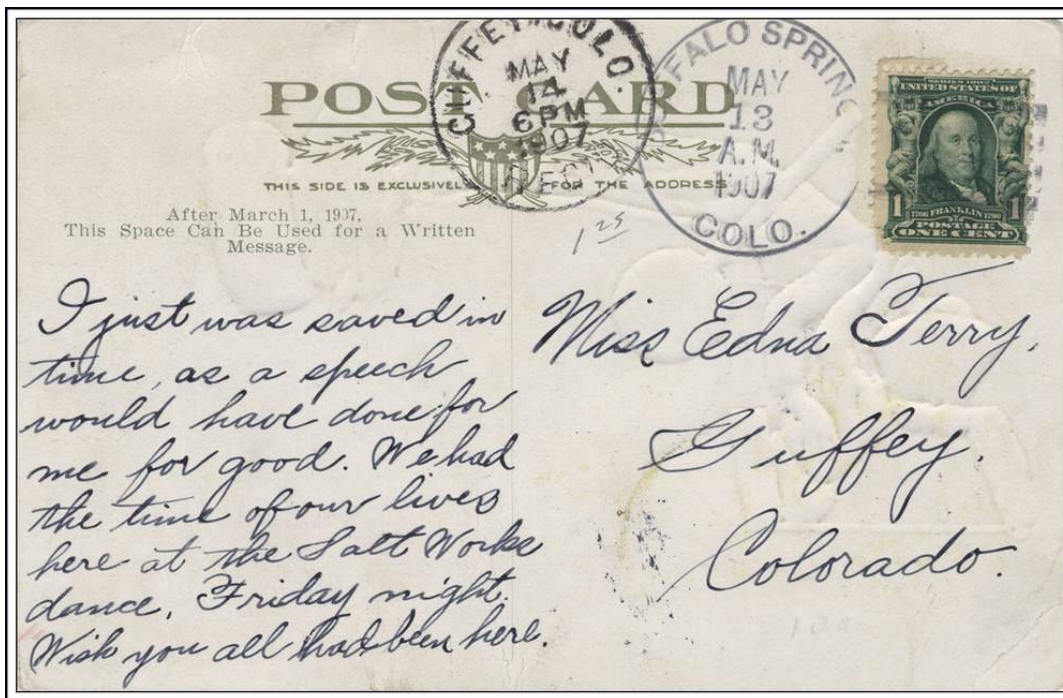 POST CARD
GUFFEY, COLO.
MAY
14
6PM
1907
BUFFALO SPRINGS
MAY
13
A.M.
1907
COLO.
SERIES 1902
UNITED STATES OF
AMERICA
1 1706 FRANKLIN 1790 1
POSTAGE
ONE CENT
THIS SIDE IS EXCLUSIVELY FOR THE ADDRESS
After March 1, 1907,
This Space Can Be Used for a Written
Message.
1 25
I just was saved in
time, as a speech
would have done for
me for good. We had
the time of our lives
here at the Salt Works
dance, Friday night.
Wish you all had been here.
Miss Edna Terry,
Guffey.
Colorado.